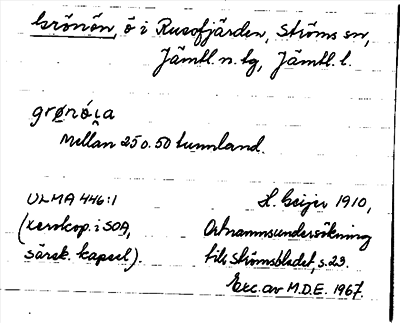 Grönön, ö i Russfjärden, Ströms sn,
Jämtl. n. tg, Jämtl. l.
grønó̤ɩa
Mellan 25 o. 50 tunnland.
ULMA 446:1
(xeroxkop. i SOA,
särsk. kapsel).
H. Geijer 1910,
Ortnamnsundersökning
till Strömsbladet, s. 23.
Exc. av M.D.E. 1967.